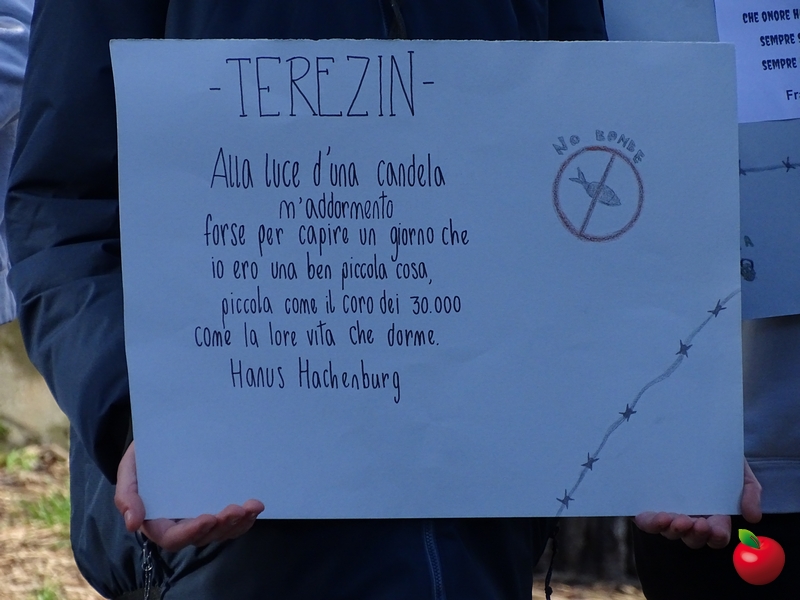 -TEREZIN-
Alla luce d'una candela
m'addormento
forse per capire un giorno che
io ero una ben piccola cosa,
piccola come il coro dei 30.000
come la lore vita che dorme.
Hanus Hachenburg
NO BOMBE
CHE ONORE
SEMPRE
SEMPRE